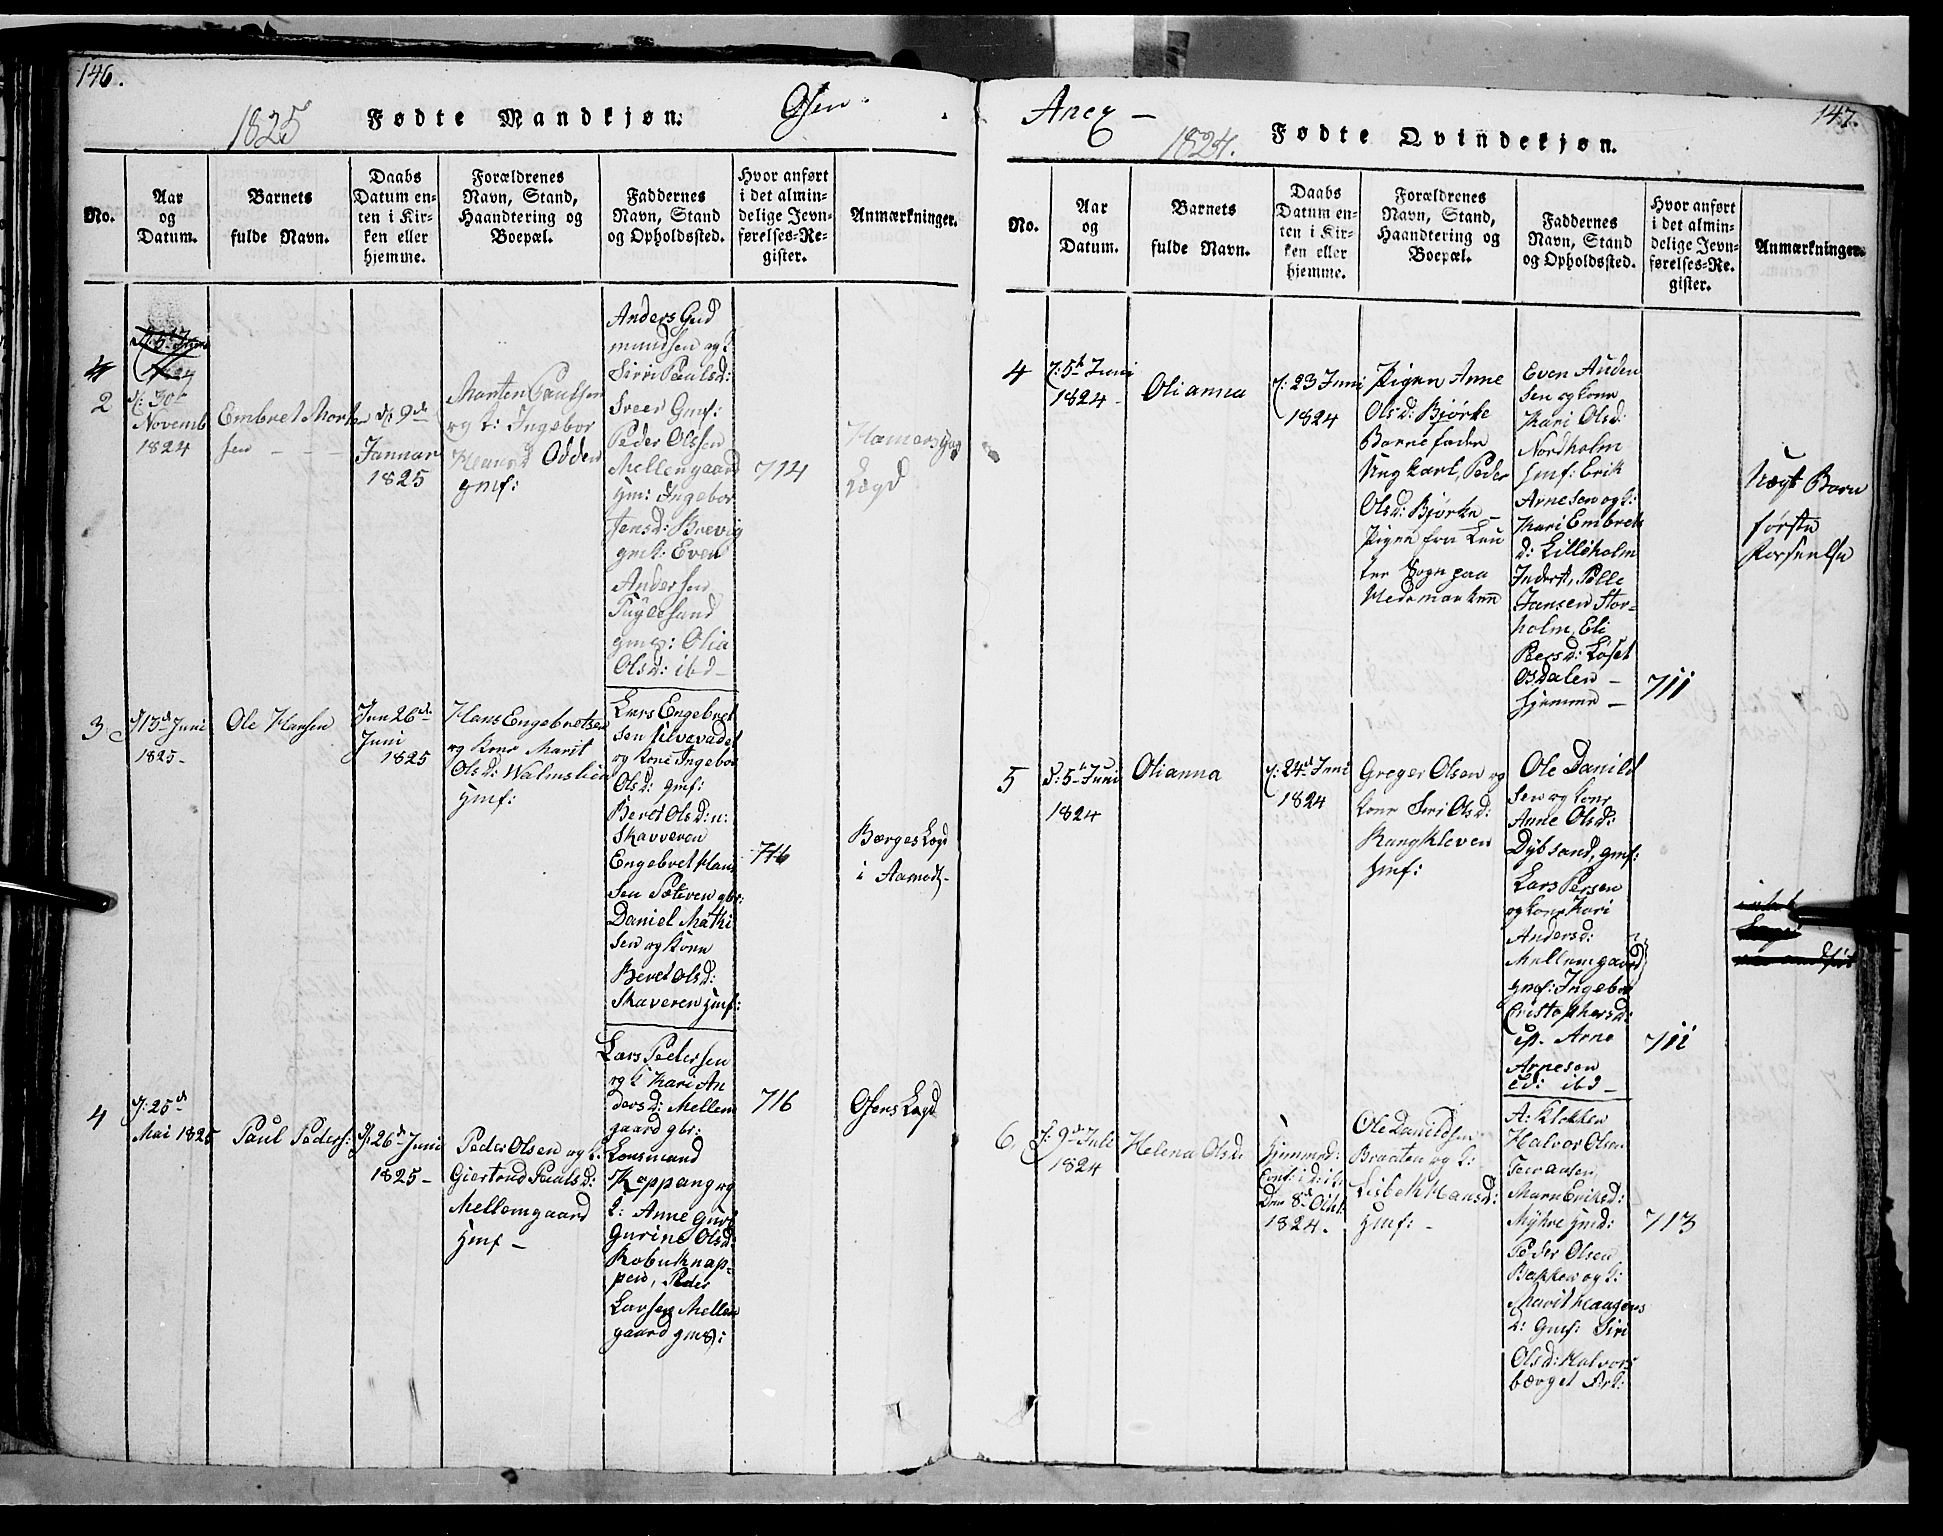 146.
1825
Fødte Mandkjøn.
Osen
No.
Aar
og
Datum.
Barnets
fulde Navn.
Daabs
Datum en-
ten i Kir-
ken eller
hjemme.
Forældrenes
Navn, Stand,
Haandtering og
Boepæl.
Faddernes
Navn, Stand
og Opholdssted.
Hvor anført
i det almin-
delige Jevn-
førelses-Re-
gister.
Anmærkninger.
2
d: 30t
Novemb
1824
Embret Morten
sen
d: 9de
Januar
1825
Morten Paulsen
og k: Ingebor
Odden
gmf:
Anders Gud
mundsen og k:
Sirri Paulsd:
Sveen Gmf:
Peder Olsen
Mellengaard
Hm: Ingebor
Jensd: Brevig
gmk: Even
Andersen
gmg: Olia
Olsd: ibd
714
Lægd
3
d 13d Juni
1825
Ole Hansen
26de
Juni
1825
Hans Engebretsen
og kone Marit
Olsd: Walmslien
Hmf:
Lars Engebret
sen
og kone Ingebor
Olsd: gmf:
Beret Olsd: n:
Skavveren
Engebret Han
sen Sæteren gbr:
Daniel Mathi
sen og kone
Beret Olsd:
Skaveren Hmf:
716
Børges Lægd
i Aamodt
4
d: 25d
Mai 1825
Paul Peders:
d: 26d Juni
1825
Peder Olsen og k:
Giertrud Paulsd:
Mellemgaard
Hmf
Lars Pedersen
og k Kari An
dersd: Mellem
gaard gbr:
Lensmand
Koppang og
k: Anne Gurl
Gurine Olsd:
pen, Peder
Larsen Mellem
gaard gms:
716
Osens Lægd
Anex
147.
1824.
Fødte Qvindekjøn.
No.
Aar
og
Datum.
Barnets
fulde Navn.
Daabs
Datum en-
ten i Kir-
ken eller
hjemme.
Forældrenes
Navn, Stand,
Haandtering og
Boepæl.
Faddernes
Navn, Stand
og Opholdssted.
Hvor anført
i det almin-
delige Jevn-
førelses-Re-
gister.
Anmærkninger.
4
d: 5t Juni
1824
Olianna
d: 23 Juni
1824
Pigen Anne
Olsd: Bjørke
Barnefader
Ungkarl, Peder
Olsd: Bjørke
Pigen fra Leu
ten Sogn paa
Hedemarken
Even Auden
sen og kone
Kari Olsd:
Nordholm
Hmf: Erik
Arnesen og k:
Kari Embrets
d: Lilleholm
Inderst, Palle
Jansen Stor-
holm, Eli
Persd: Løset
Osdalen
hjemme
711
Uægt Barn
første
Forseelse
5
d: 5t Juni
1824
Olianna
d: 24d Juni
1824
Greger Olsen og
kone Siri Olsd:
Rangkleven
Hmf:
Ole Danield
sen og kone
Anne Olsd:
Dybsand, gmf:
Lars Persen
og kone Kari
Andersd:
Mellemgaard
gmf: Ingebor
Cristophersd:
Arne
Arnesen
ibd
711
6
d: 9d Juli
1824
Helena Olsd:
Hjemmed:
Den 8d Okt
1824.
Ole Danieldsen
Braaten og k:
Lisbeth Hansd:
Hmf:
A: Klokker
Halvor Olsen
Maren Eriksd:
Myhre Hmd:
Peder Olsen
Bakken og k:
Marit Haagens
d: Gmf: Siri
Olsd: Halvors
bærget
713